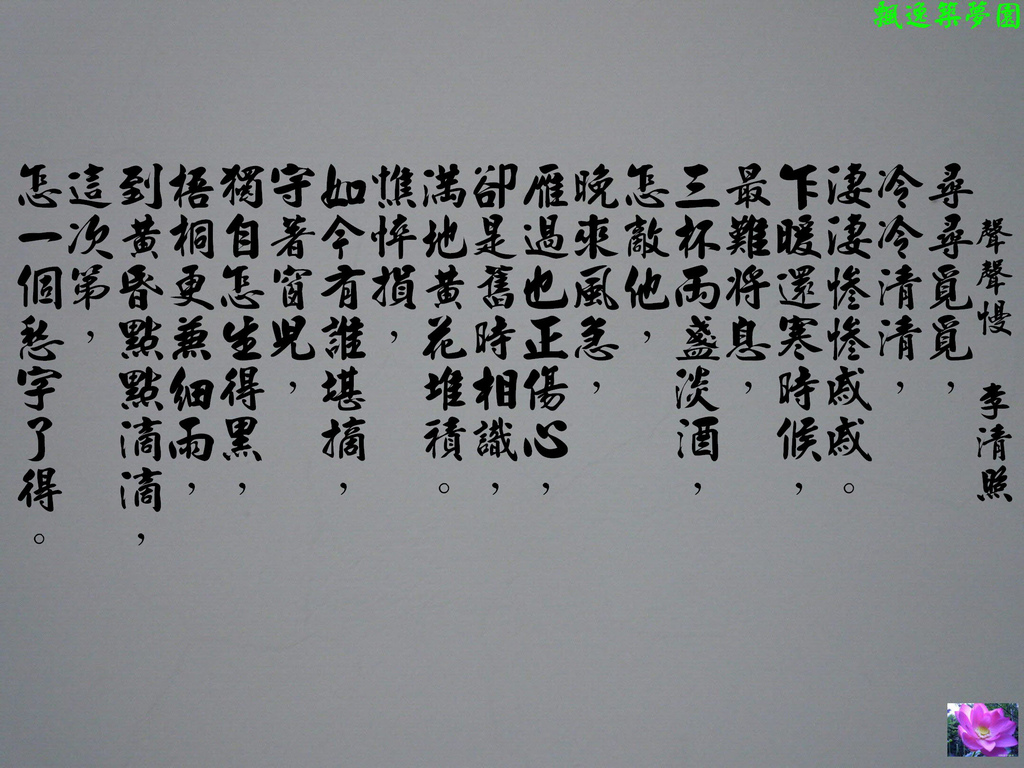 飄逸築夢園
聲聲慢 李清照
尋尋覓覓，
冷冷清清，
淒淒慘慘戚戚。
乍暖還寒時候，
最難將息，
三杯兩盞淡酒，
怎敵他，
晚來風急，
雁過也正傷心，
卻是舊時相識，
滿地黃花堆積。
憔悴損，
如今有誰堪摘，
守著窗兒，
獨自怎生得黑，
梧桐更兼細雨，
到黃昏點點滴滴，
這次第，
怎一個愁字了得。